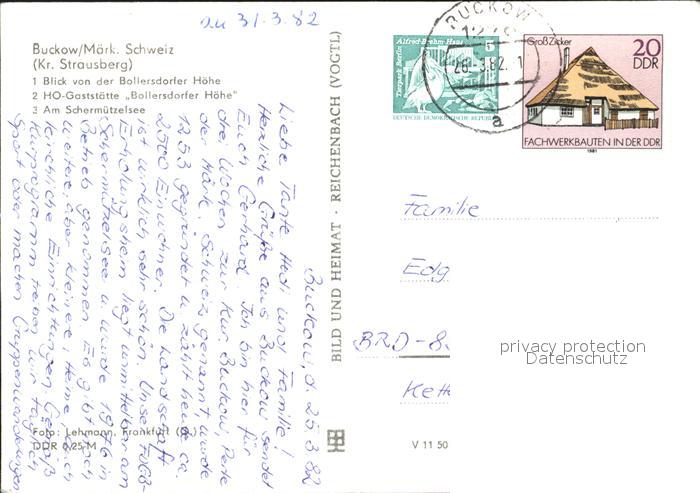 an 31.3.82
Buckow/Märk. Schweiz
(Kr. Strausberg)
1 Blick von der Bollersdorfer Höhe
2 HO-Gaststätte „Bollersdorfer Höhe"
3 Am Schermützelsee
Buckow, d. 25.3.82
Liebe Tante Hedi und Familie!
Herzliche Grüße aus Buckow sendet
Euch Gerhard. Ich bin hier für
drei Wochen zur Kur. Buckow, Perle
der Märk. Schweiz genannt, wurde
1253 gegründet u. zählt heute ca.
2500 Einwohner. Die Landschaft
ist wirklich sehr schön. Unser FDGB-
Erholungsheim liegt unmittelbar am
Schermützelsee u. wurde 1976 in
Betrieb genommen. Es gibt noch
weitere, aber kleinere, Heime, auch
kirchliche Einrichtungen. Gemäß
Kurprogramm treiben wir täglich
Sport oder machen Gruppenwanderungen
Foto: Lehmann, Frankfurt (O.)
DDR 0,25 M
BILD UND HEIMAT · REICHENBACH (VOGTL)
V 11 50
Alfred-Brehm-Haus
Tierpark Berlin
5
DEUTSCHE DEMOKRATISCHE REPUBLIK
BUCKOW
26.3.82
a
Groß Zicker
20
DDR
FACHWERKBAUTEN IN DER DDR
1981
Familie
Edg
BRD-8
Kett
privacy protection
Datenschutz